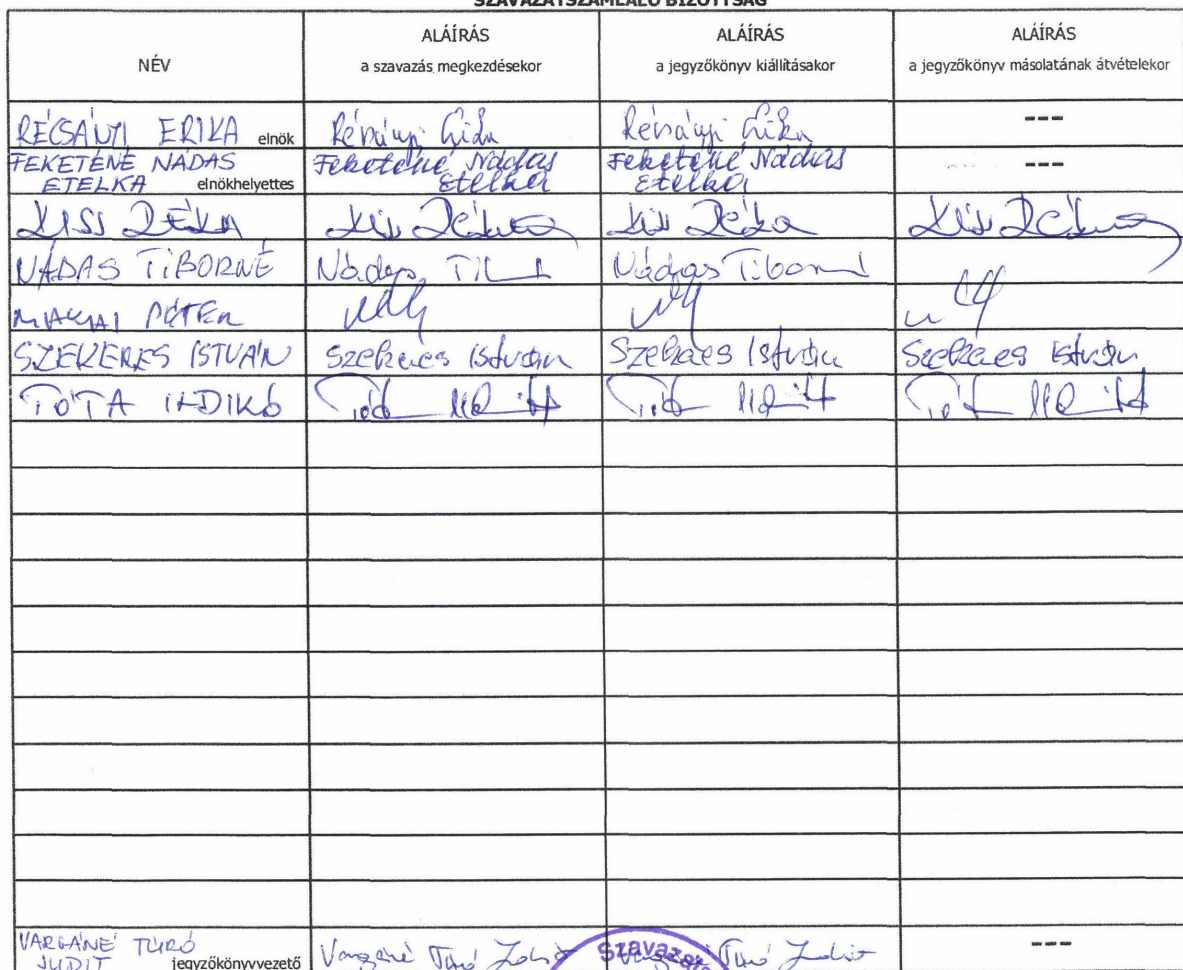 SZAVAZATSZÁMLÁLÓ BIZOTTSÁG
NÉV
ALÁÍRÁS
a szavazás megkezdésekor
ALÁÍRÁS
a jegyzőkönyv kiállításakor
ALÁÍRÁS
a jegyzőkönyv másolatának átvételekor
RÉCSÁNYI ERIKA elnök
---
FEKETÉNÉ NÁDAS
ETELKA elnökhelyettes
Feketéné Nádas
Etelka
Feketéné Nádas
Etelka
---
KISS RÉKA Kiss Réka Kiss Réka Kiss Réka
NÁDAS TIBORNÉ Nádas Nádas Tiborné
MAKAI PÉTER
SZEKERES ISTVÁN Szekeres István Szekeres István Szekeres István
TÓTA ILDIKÓ Tóta Ildikó Tóta Ildikó Tóta Ildikó
VARGÁNÉ TURÓ
JUDIT jegyzőkönyvvezető
Vargáné Turó Judit
Turó Judit
---